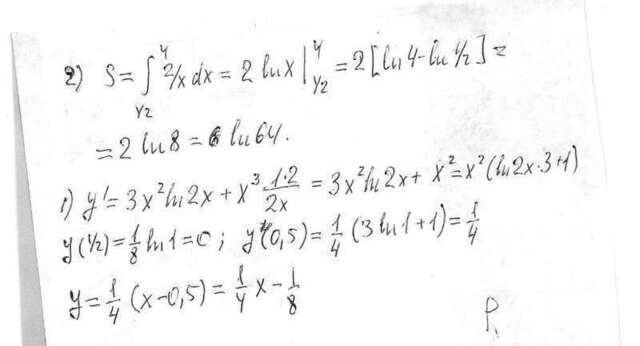 2) S = ∫_{1/2}^{4} 2/x dx = 2 ln x |_{1/2}^{4} = 2 [ln 4 - ln 1/2] =
= 2 ln 8 = ln 64.
1) y' = 3x² ln 2x + x³ · 1·2/2x = 3x² ln 2x + x² = x² (ln 2x · 3 + 1)
y(1/2) = 1/8 ln 1 = 0; y'(0,5) = 1/4 (3 ln 1 + 1) = 1/4
y = 1/4 (x - 0,5) = 1/4 x - 1/8
P